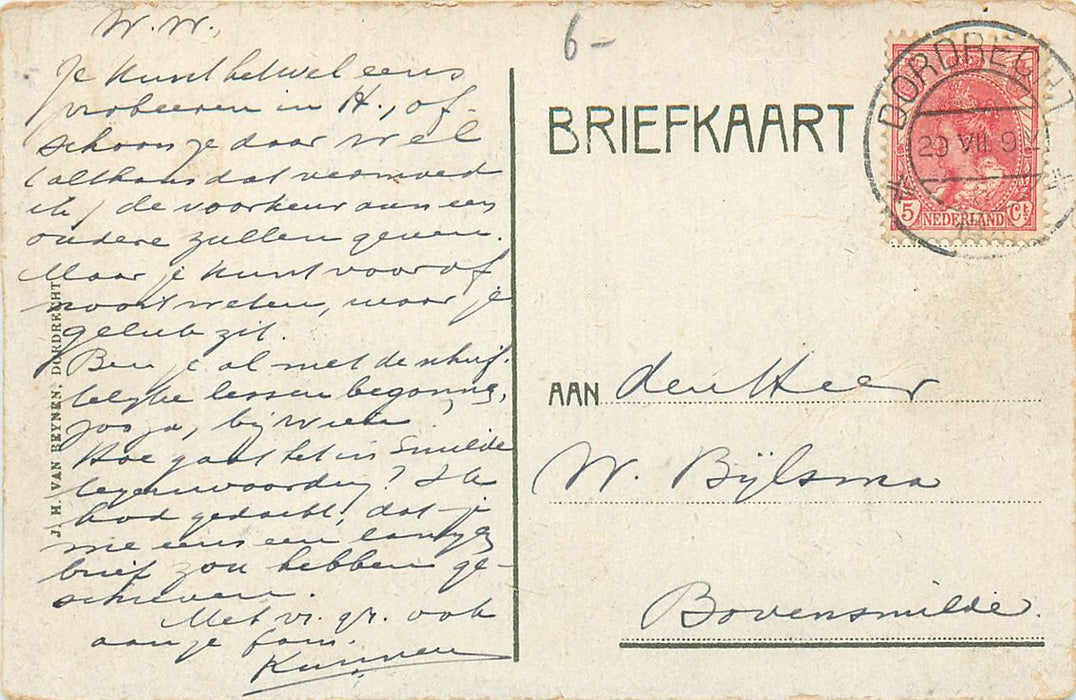 W. W.,
Je kunt het wel eens
probeeren in H., of-
schoon ze daar wel
(althans dat vermoed
ik) de voorkeur aan een
oudere zullen geven.
Maar je kunt vooraf
nooit weten, waar je
geluk zit.
Ben je al met de schrif-
telijke lessen begonnen,
zoo ja, bij wien?
Hoe gaat het in Smilde
tegenwoordig? Ik
had gedacht, dat je
me eens een langen
brief zou hebben ge-
schreven.
Met vr. gr. ook
aan je fam.
J. H. VAN REYNEN, DORDRECHT
6-
BRIEFKAART
DORDRECHT
29 VII 9
5 NEDERLAND Ct
AAN den Heer
W. Bijlsma
Bovensmilde.